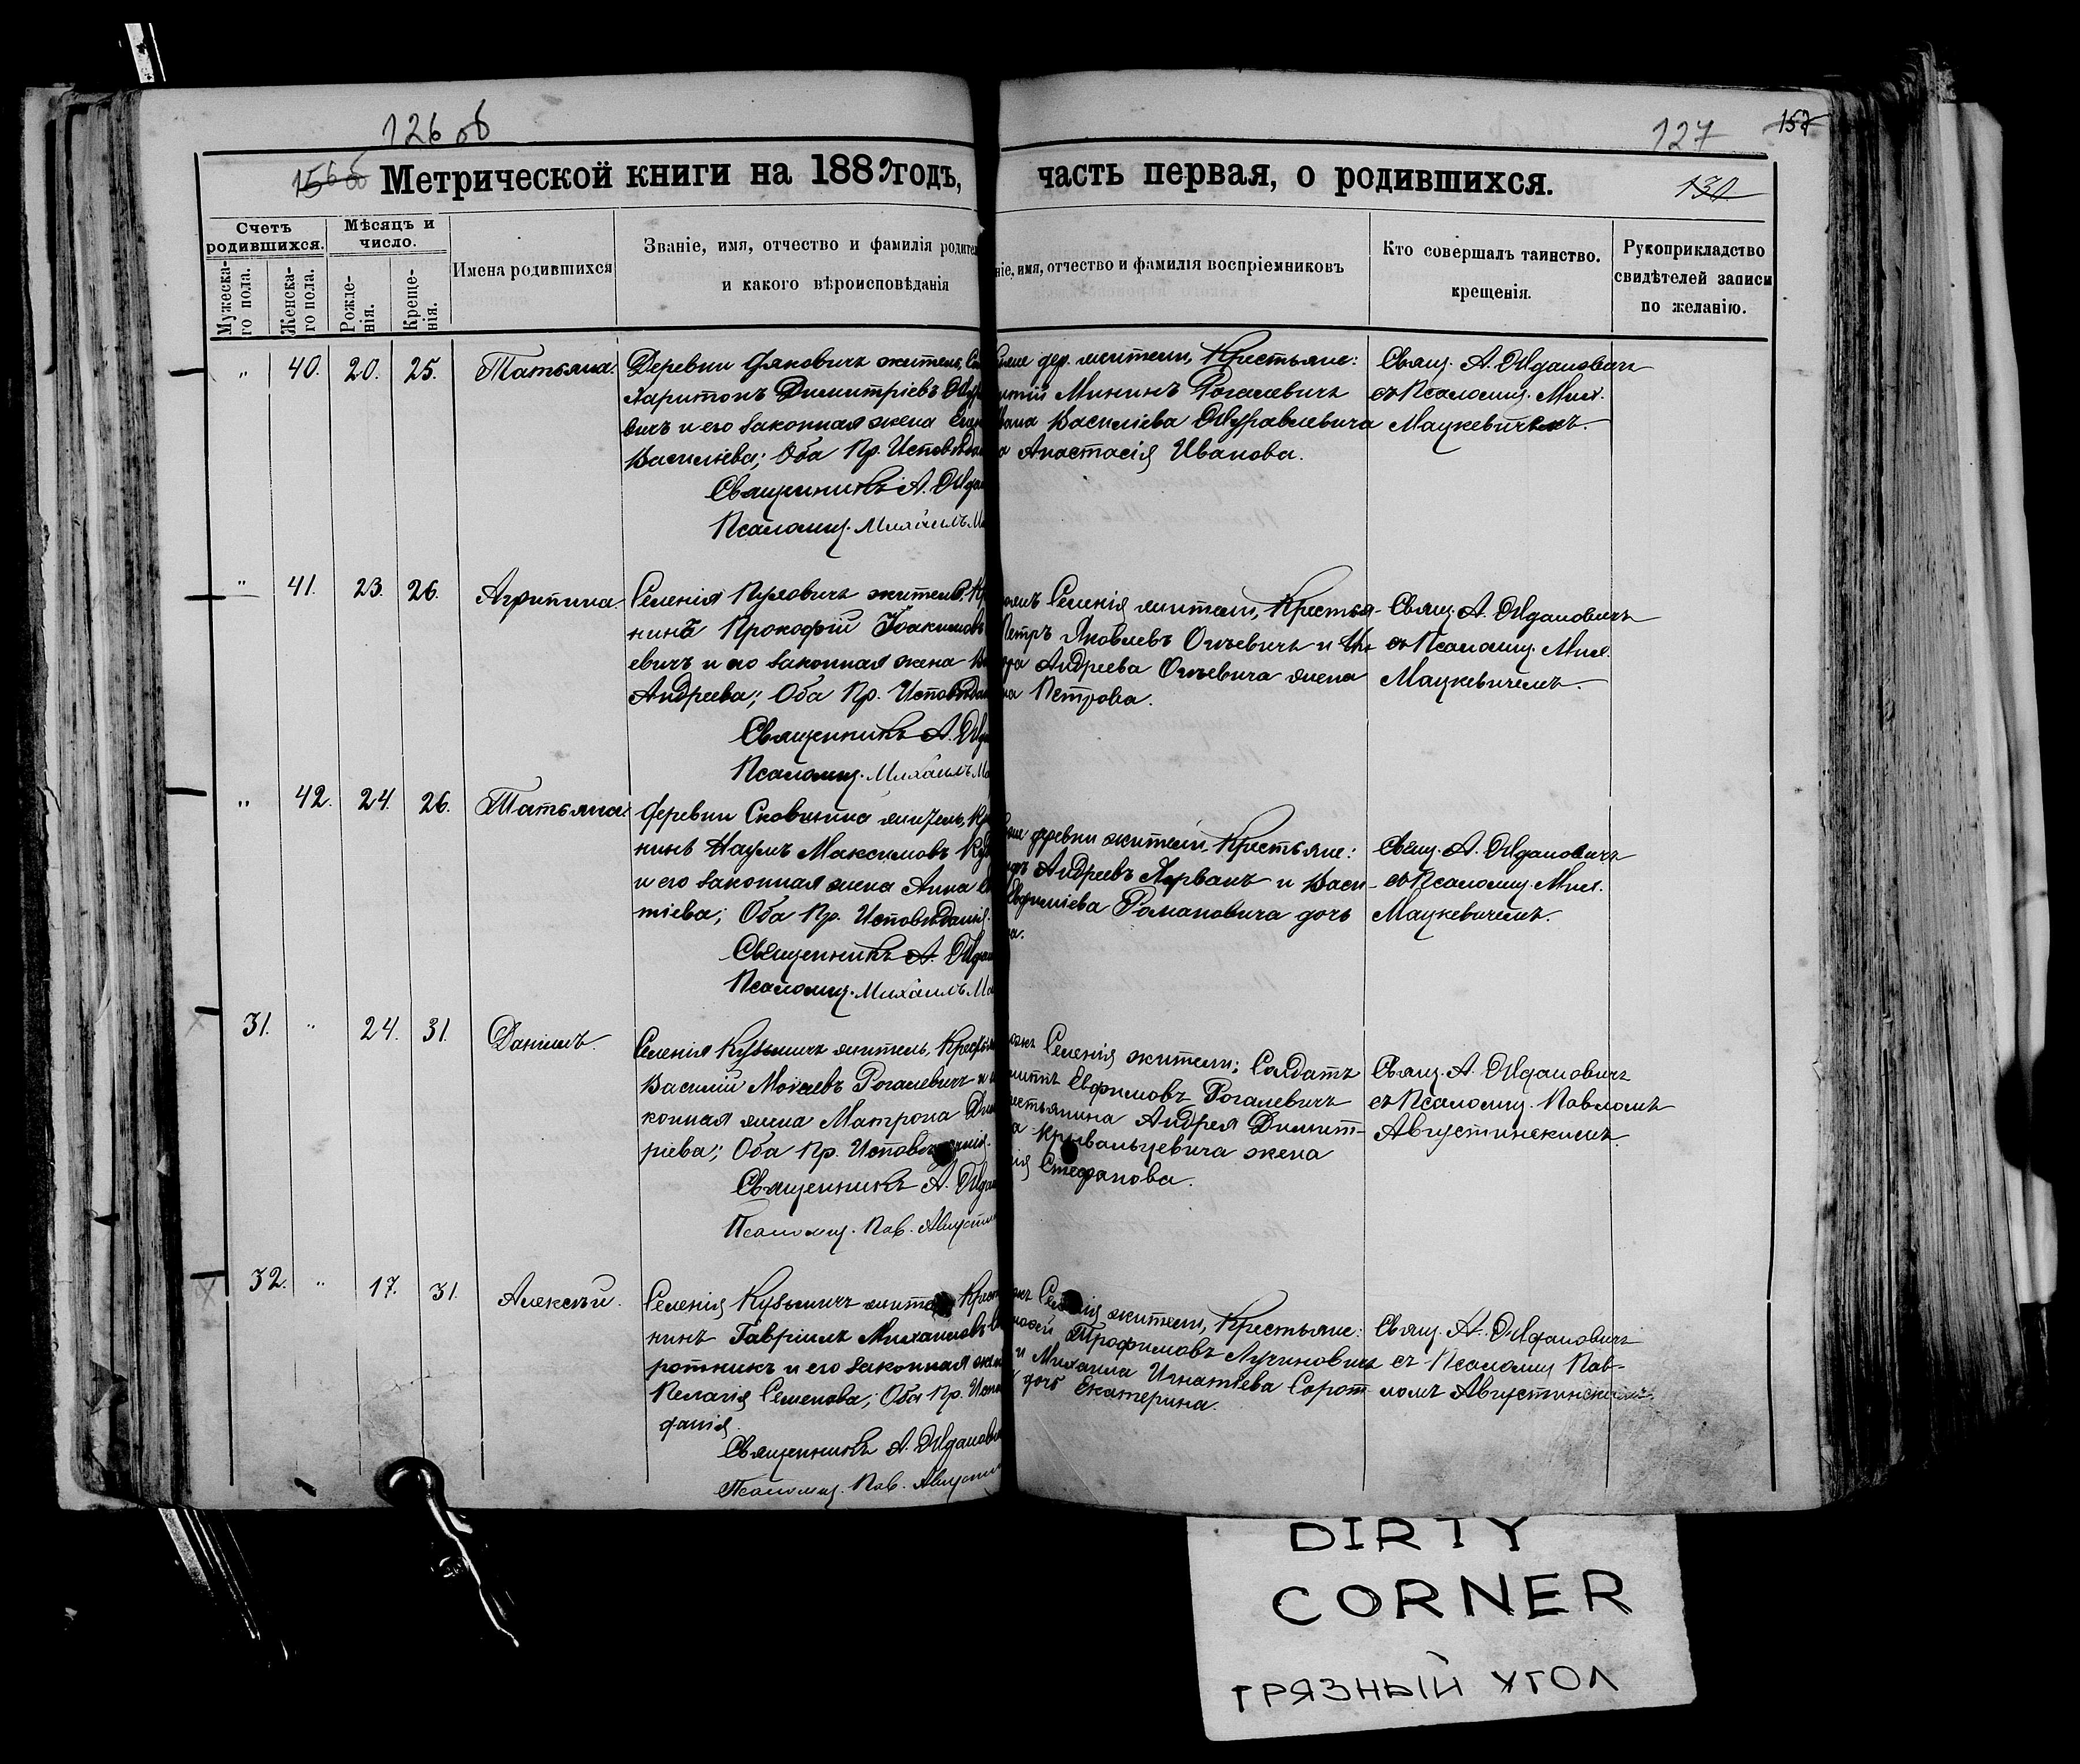 126 об
127
157
156 об
Метрической книги на 1889 годъ,
часть первая, о родившихся.
130
Счетъ родившихся.
Мѣсяцъ и число.
Мужеска-го пола.
Женска-го пола.
Рожде-нія.
Креще-нія.
Имена родившихся
Званіе, имя, отчество и фамилія родител
и какого вѣроисповѣданія
ніе, имя, отчество и фамилія воспріемниковъ
Кто совершалъ таинство.
крещенія.
Рукоприкладство
свидѣтелей записи
по желанію.
" 40. 20. 25. Татьяна.
Деревни житель,
Харитонъ Димитріевъ
вичъ и его законная жена
Васильева; Оба Пр. Исповѣдан
Священникъ А. Ждан
Псаломщ. Михаилъ Ма
дер. жители, Крестьяне:
Мининъ Рогалевичъ
Василіева Журавлевича
а Анастасія Иванова.
Свящ. А. Ждановичъ
съ Псаломщ. Мих.
Мацкевичемъ.
" 41. 23. 26. Агрипина.
Селенія Пуховичъ житель, Кр
нинъ Прокофій Іоакимовъ
евичъ и его законная жена
Андреева; Оба Пр. Исповѣдан
Священникъ А. Жд
Псаломщ. Михаилъ Ма
Селенія жители, Крестья-
Петръ Яковлевъ и
Андреева жена
на Петрова.
Свящ. А. Ждановичъ
съ Псаломщ. Мих.
Мацкевичемъ.
" 42. 24. 26. Татьяна.
Деревни житель, Кр
нинъ Наумъ Максимовъ
и его законная жена Анна
тіева; Оба Пр. Исповѣданія.
Священникъ А. Ждан
Псаломщ. Михаилъ Ма
деревни жители, Крестьяне:
Андреевъ и Васи-
Евфиміева Романовича дочь
а.
Свящ. А. Ждановичъ
съ Псаломщ. Мих.
Мацкевичемъ.
31. " 24. 31. Даніилъ.
Селенія Кузьмичъ житель, Крестья
Василій Моисеевъ Рогалевичъ и
конная жена Матрона Дим
ріева; Оба Пр.
Священникъ А. Ждан
Псаломщ. Пав. Августи
Селенія жители; Солдатъ
Евфимовъ Рогалевичъ
естьянина Андрея Димит-
а Крывальцевича жена
ія Стефанова.
Свящ. А. Ждановичъ
съ Псаломщ. Павломъ
Августинскимъ.
32. " 17. 31. Алексѣй.
Селенія Кузьмичъ Крест
нинъ Гавріилъ Михаиловъ
ротникъ и его законная жен
Пелагія Семенова; Оба Пр. Испо
данія
Священникъ А. Жданови
Псаломщ. Пав. Августи
жители, Крестьяне:
Трофимовъ Лучиновичъ
и Михаила Игнатіева Сорот
дочь Екатерина.
Свящ. А. Ждановичъ
съ Псаломщ Пав-
ломъ Августинскимъ
DIRTY
CORNER
ГРЯЗНЫЙ УГОЛ